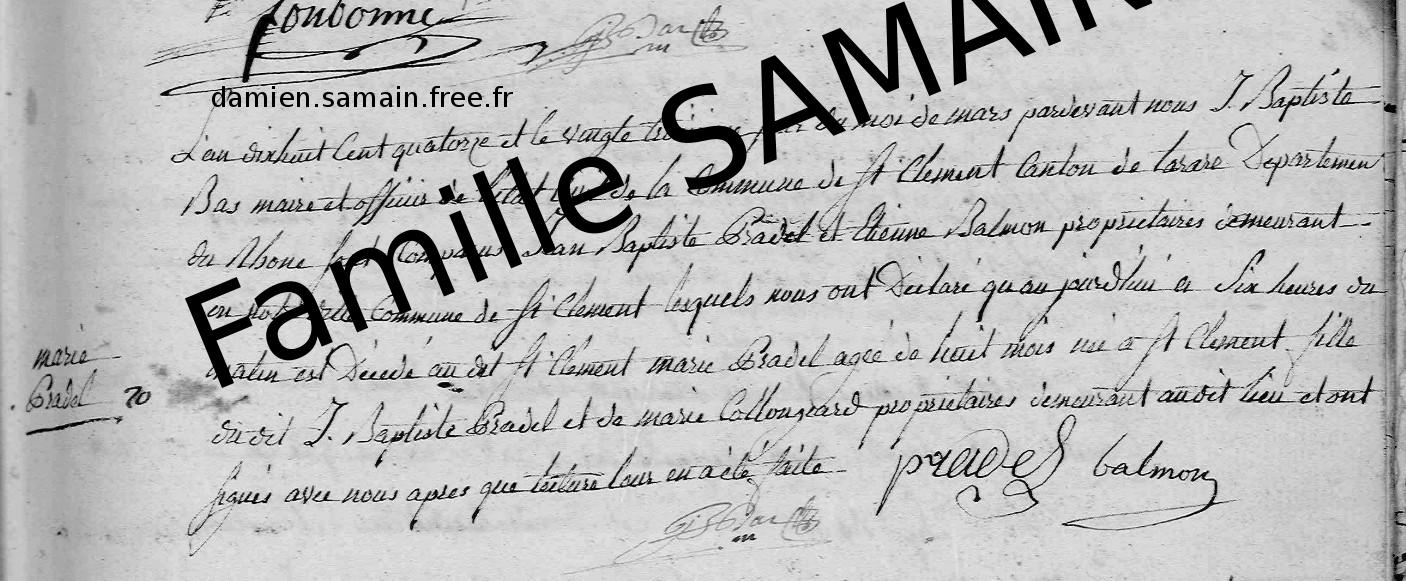 foubonne
damien.samain.free.fr
Famille SAMAIN
L'an dixhuit cent quatorze et le vingte troi jour du moi de mars pardevant nous J. Baptiste
Bas maire et officier de l'etat civil de la Commune de St Clement Canton de tarare Departemen
du Rhone sont Comparus Jean Baptiste Pradel et Etienne Balmon proprietaires demeurant
en notre dite Commune de St Clement lesquels nous ont Déclaré qu'aujourdhui a Six heures du
matin est Décédé au dit St Clement marie Pradel agée de huit mois née a St Clement fille
du dit J. Baptiste Pradel et de marie Collongeard proprietaires demeurant audit lieu et ont
signés avec nous apres que lecture leur en a été faite
marie
Pradel 20
pradel balmon